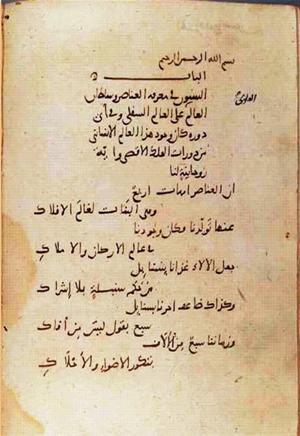 بسم الله الرحمن الرحيم
الباب
الستون في معرفة العناصر وسلطان
العالم العلوي على العالم السفلي وفي أي
دورة كان وجود هذا العالم الانساني
من دورات الفلك الاقصى واية
روحانية لنا
ان العناصر امهات اربع
وهي البنات لعالم الافلاك
عنها تولدنا وكان وجودنا
في عالم الاركان والاملاك
جعل الاله غذانا بسنابل
من حكم سنبلة بلا اشراك
وكذاك ضاعف اجرنا بسنابل
سبع بقول ليس من افاك
وزماننا سبع من الالاف
بتكور الاضواء والاحلاك